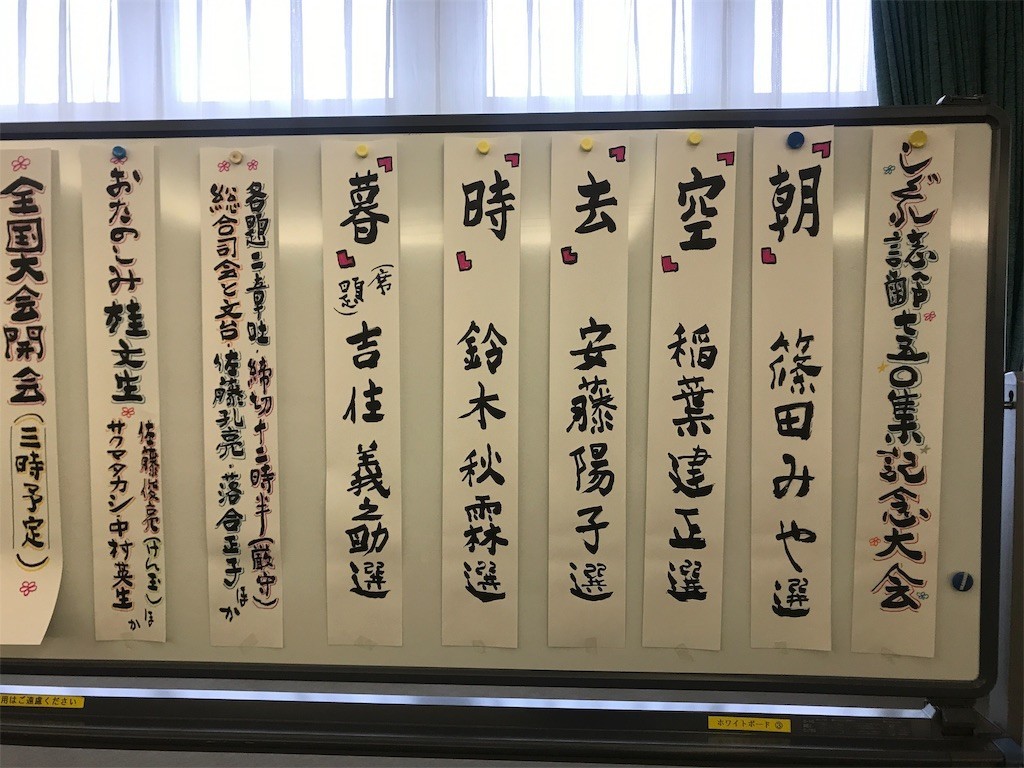 しぐれ誌齢七五〇集記念大会
「朝」 篠田みや選
「空」 稲葉建正選
「去」 安藤陽子選
「時」 鈴木秋霖選
「暮」(席題) 吉住義之助選
各題二章吐・締切十二時半(厳守)
総合司会と文台・佐藤孔亮・落合正子ほか
おたのしみ 雄文生
佐藤俊亮(けん玉)ほ
サクマタカシ 中村英生 か
全国大会開会(三時予定)
用はご遠慮ください
ホワイトボード